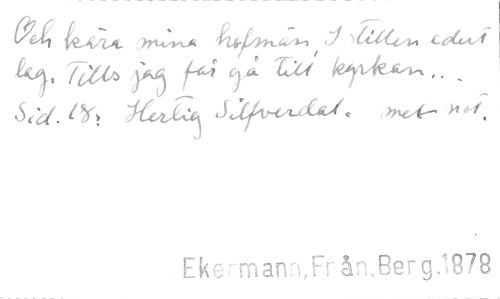 Och kära mina hofmän, I stillen edert
lag. Tills jag får gå till kyrkan...
Sid. 18. Hertig Silfverdal. met not.
Ekermann,Från,Berg.1878